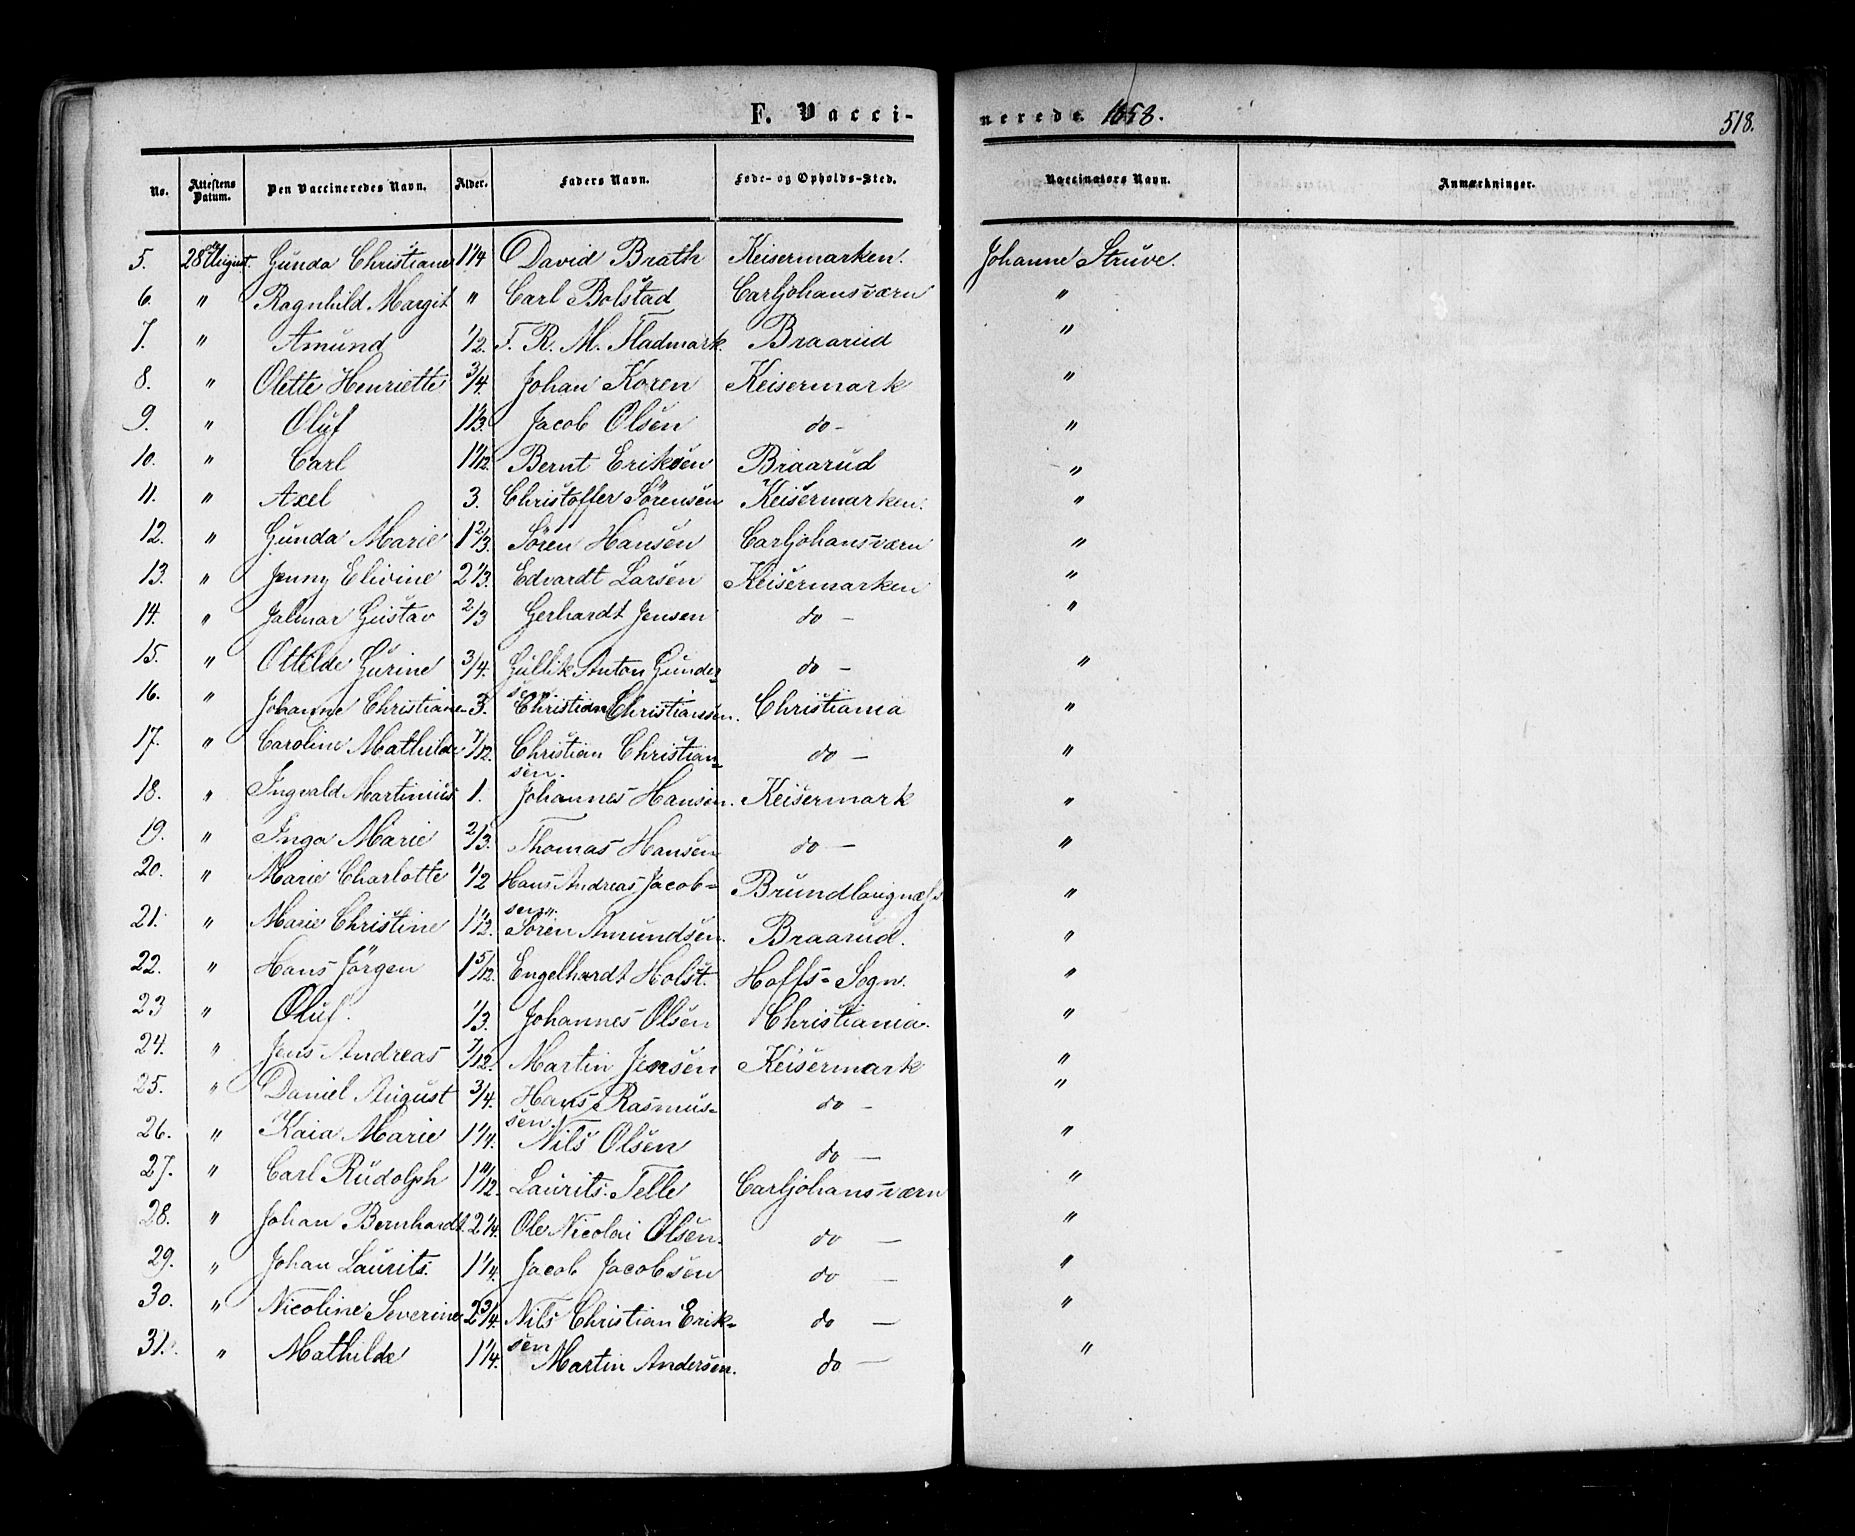 F. Vacci-nerede 1858. 518.
No. Attestens Datum. Den Vaccineredes Navn. Alder. Faders Navn. Føde- og Opholds-Sted. Vaccinators Navn. Anmærkninger.
5. 28de August. Gunda Christiane 1 1/4 David Brath Keisermarken. Johanne Struve.
6. " Ragnhild Margit " Carl Bolstad Carljohansværn "
7. " Amund 1/2. F. R. M. Fladmark. Braarud "
8. " Olette Henriette 3/4. Johan Koren Keisermark "
9. " Oluf 1 1/3. Jacob Olsen do - "
10. " Carl 1 1/12. Bernt Eriksen Braarud "
11. " Axel 3. Christoffer Sörensen Keisermarken. "
12. " Gunda Marie 1 2/3. Sören Hansen Carljohansværn "
13. " Jenny Elivine 2 1/3. Edvardt Larsen Keisermarken "
14. " Jalmar Gustav 2/3 Gerhardt Jensen do - "
15. " Ottilde Gurine 3/4. Gullik Anton Gunder- do - "
sen
16. " Johanne Christiane 3. Christian Christiansen. Christiania "
17. " Caroline Mathilde 7/12. Christian Christian- do - "
sen.
18. " Ingvald Martinius 1. Johannes Hansen. Keisermark "
19. " Inga Marie 2/3. Thomas Hansen do - "
20. " Marie Charlotte 1/2 Hans Andreas Jacob- "
sen.
21. " Marie Christine 1 1/3. Sören Amundsen. Braarud. "
22. " Hans Jörgen 1 5/12. Engelhardt Holst. Hoffs-Sogn. "
23 " Oluf. 1/3. Johannes Olsen Christiania. "
24. " Jens Andreas 7/12. Martin Jensen Keisermark "
25. " Daniel August 3/4. Hans Rasmus- do - "
sen.
26. " Kaia Marie 1 1/4. Nils Olsen do - "
27. " Carl Rudolph 1 11/12. Laurits Telle Carljohansværn "
28. " Johan Bernhardt. 2 1/4. Ole Nicolai Olsen. do - "
29. " Johan Laurits. 1 1/4. Jacob Jacobsen do - "
30. " Nicoline Severine 2 3/4. Nils Christian Erik- do - "
sen
31. " Mathilde 1 1/4. Martin Andersen. do - "